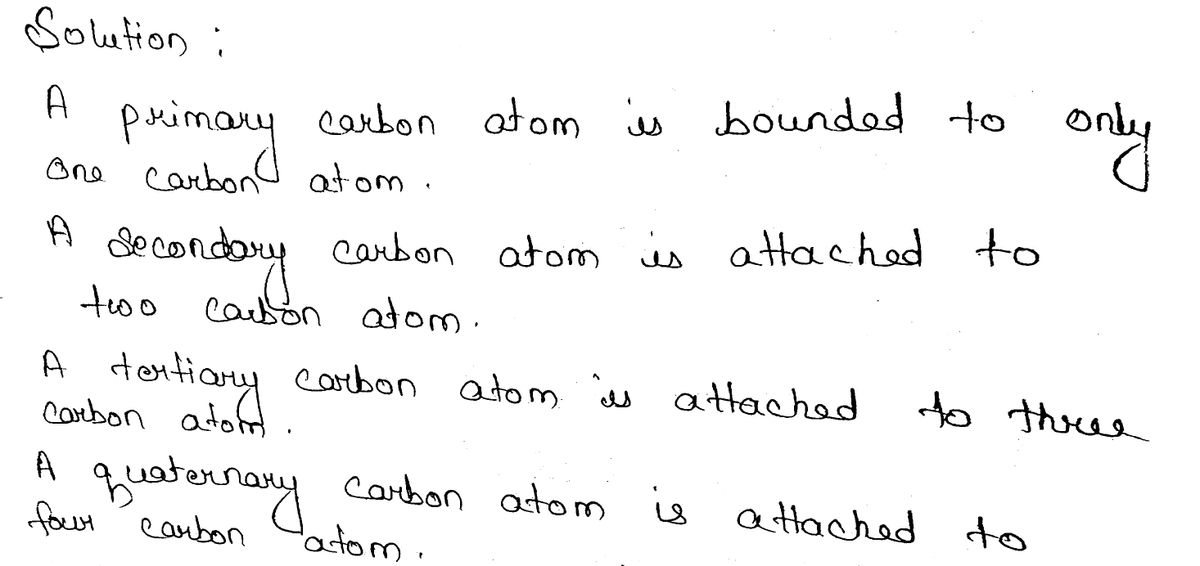 Solution :
A primary carbon atom is bounded to only
one carbon atom.
A secondary carbon atom is attached to
two carbon atom.
A tertiary carbon atom is attached to three
carbon atom.
A quaternary carbon atom is attached to
four carbon atom.